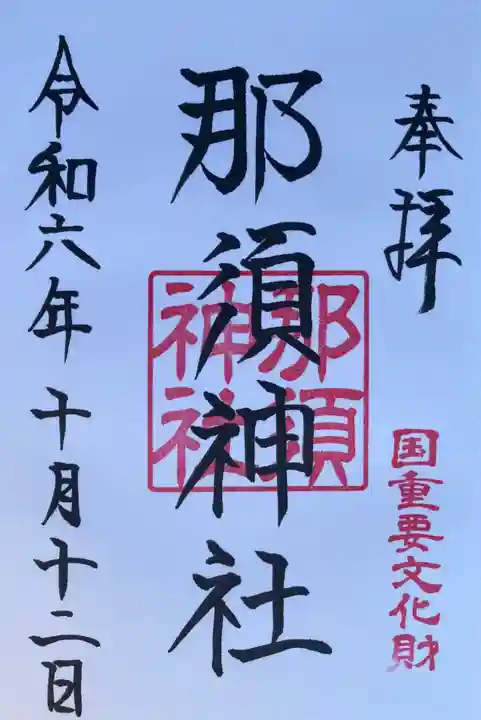 奉拝
国重要文化財
那須神社
那須神社
令和六年十月十二日